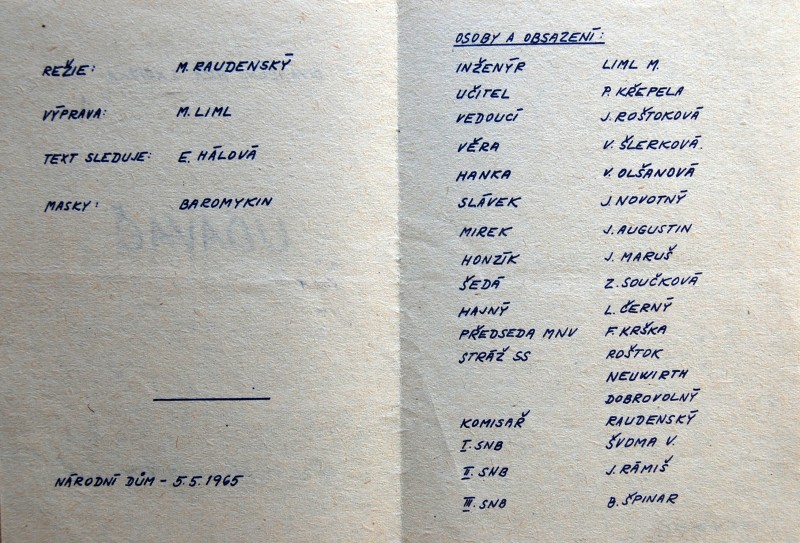 REŽIE: M. RAUDENSKÝ
VÝPRAVA: M. LIML
TEXT SLEDUJE: E. HÁLOVÁ
MASKY: BAROMYKIN
NÁRODNÍ DŮM - 5.5.1965
OSOBY A OBSAZENÍ:
INŽENÝR LIML M.
UČITEL P. KŘEPELA
VEDOUCÍ J. ROŠTOKOVÁ
VĚRA V. ŠLERKOVÁ.
HANKA V. OLŠANOVÁ
SLÁVEK J. NOVOTNÝ
MIREK J. AUGUSTIN
HONZÍK J. MARUŠ
ŠEDÁ Z. SOUČKOVÁ
HAJNÝ L. ČERNÝ
PŘEDSEDA MNV F. KRŠKA
STRÁŽ SS ROŠTOK
NEUWIRTH
DOBROVOLNÝ
KOMISAŘ RAUDENSKÝ
I. SNB ŠVOMA V.
II. SNB J. RÁMIŠ
III. SNB B. ŠPINAR